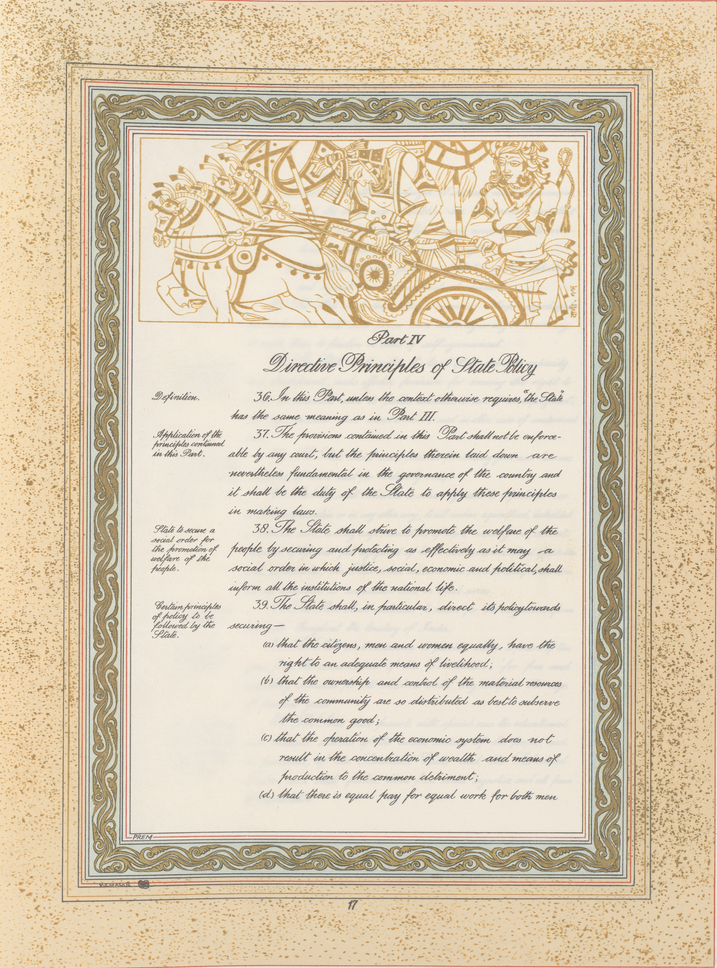 Part IV
Directive Principles of State Policy
Definition.
36. In this Part, unless the context otherwise requires, "the State"
has the same meaning as in Part III.
Application of the
principles contained
in this Part.
37. The provisions contained in this Part shall not be enforce-
able by any court, but the principles therein laid down are
nevertheless fundamental in the governance of the country and
it shall be the duty of the State to apply these principles
in making laws.
State to secure a
social order for
the promotion of
welfare of the
people.
38. The State shall strive to promote the welfare of the
people by securing and protecting as effectively as it may a
social order in which justice, social, economic and political, shall
inform all the institutions of the national life.
Certain principles
of policy to be
followed by the
State.
39. The State shall, in particular, direct its policy towards
securing—
(a) that the citizens, men and women equally, have the
right to an adequate means of livelihood;
(b) that the ownership and control of the material resources
of the community are so distributed as best to subserve
the common good;
(c) that the operation of the economic system does not
result in the concentration of wealth and means of
production to the common detriment;
(d) that there is equal pay for equal work for both men
PREM
17